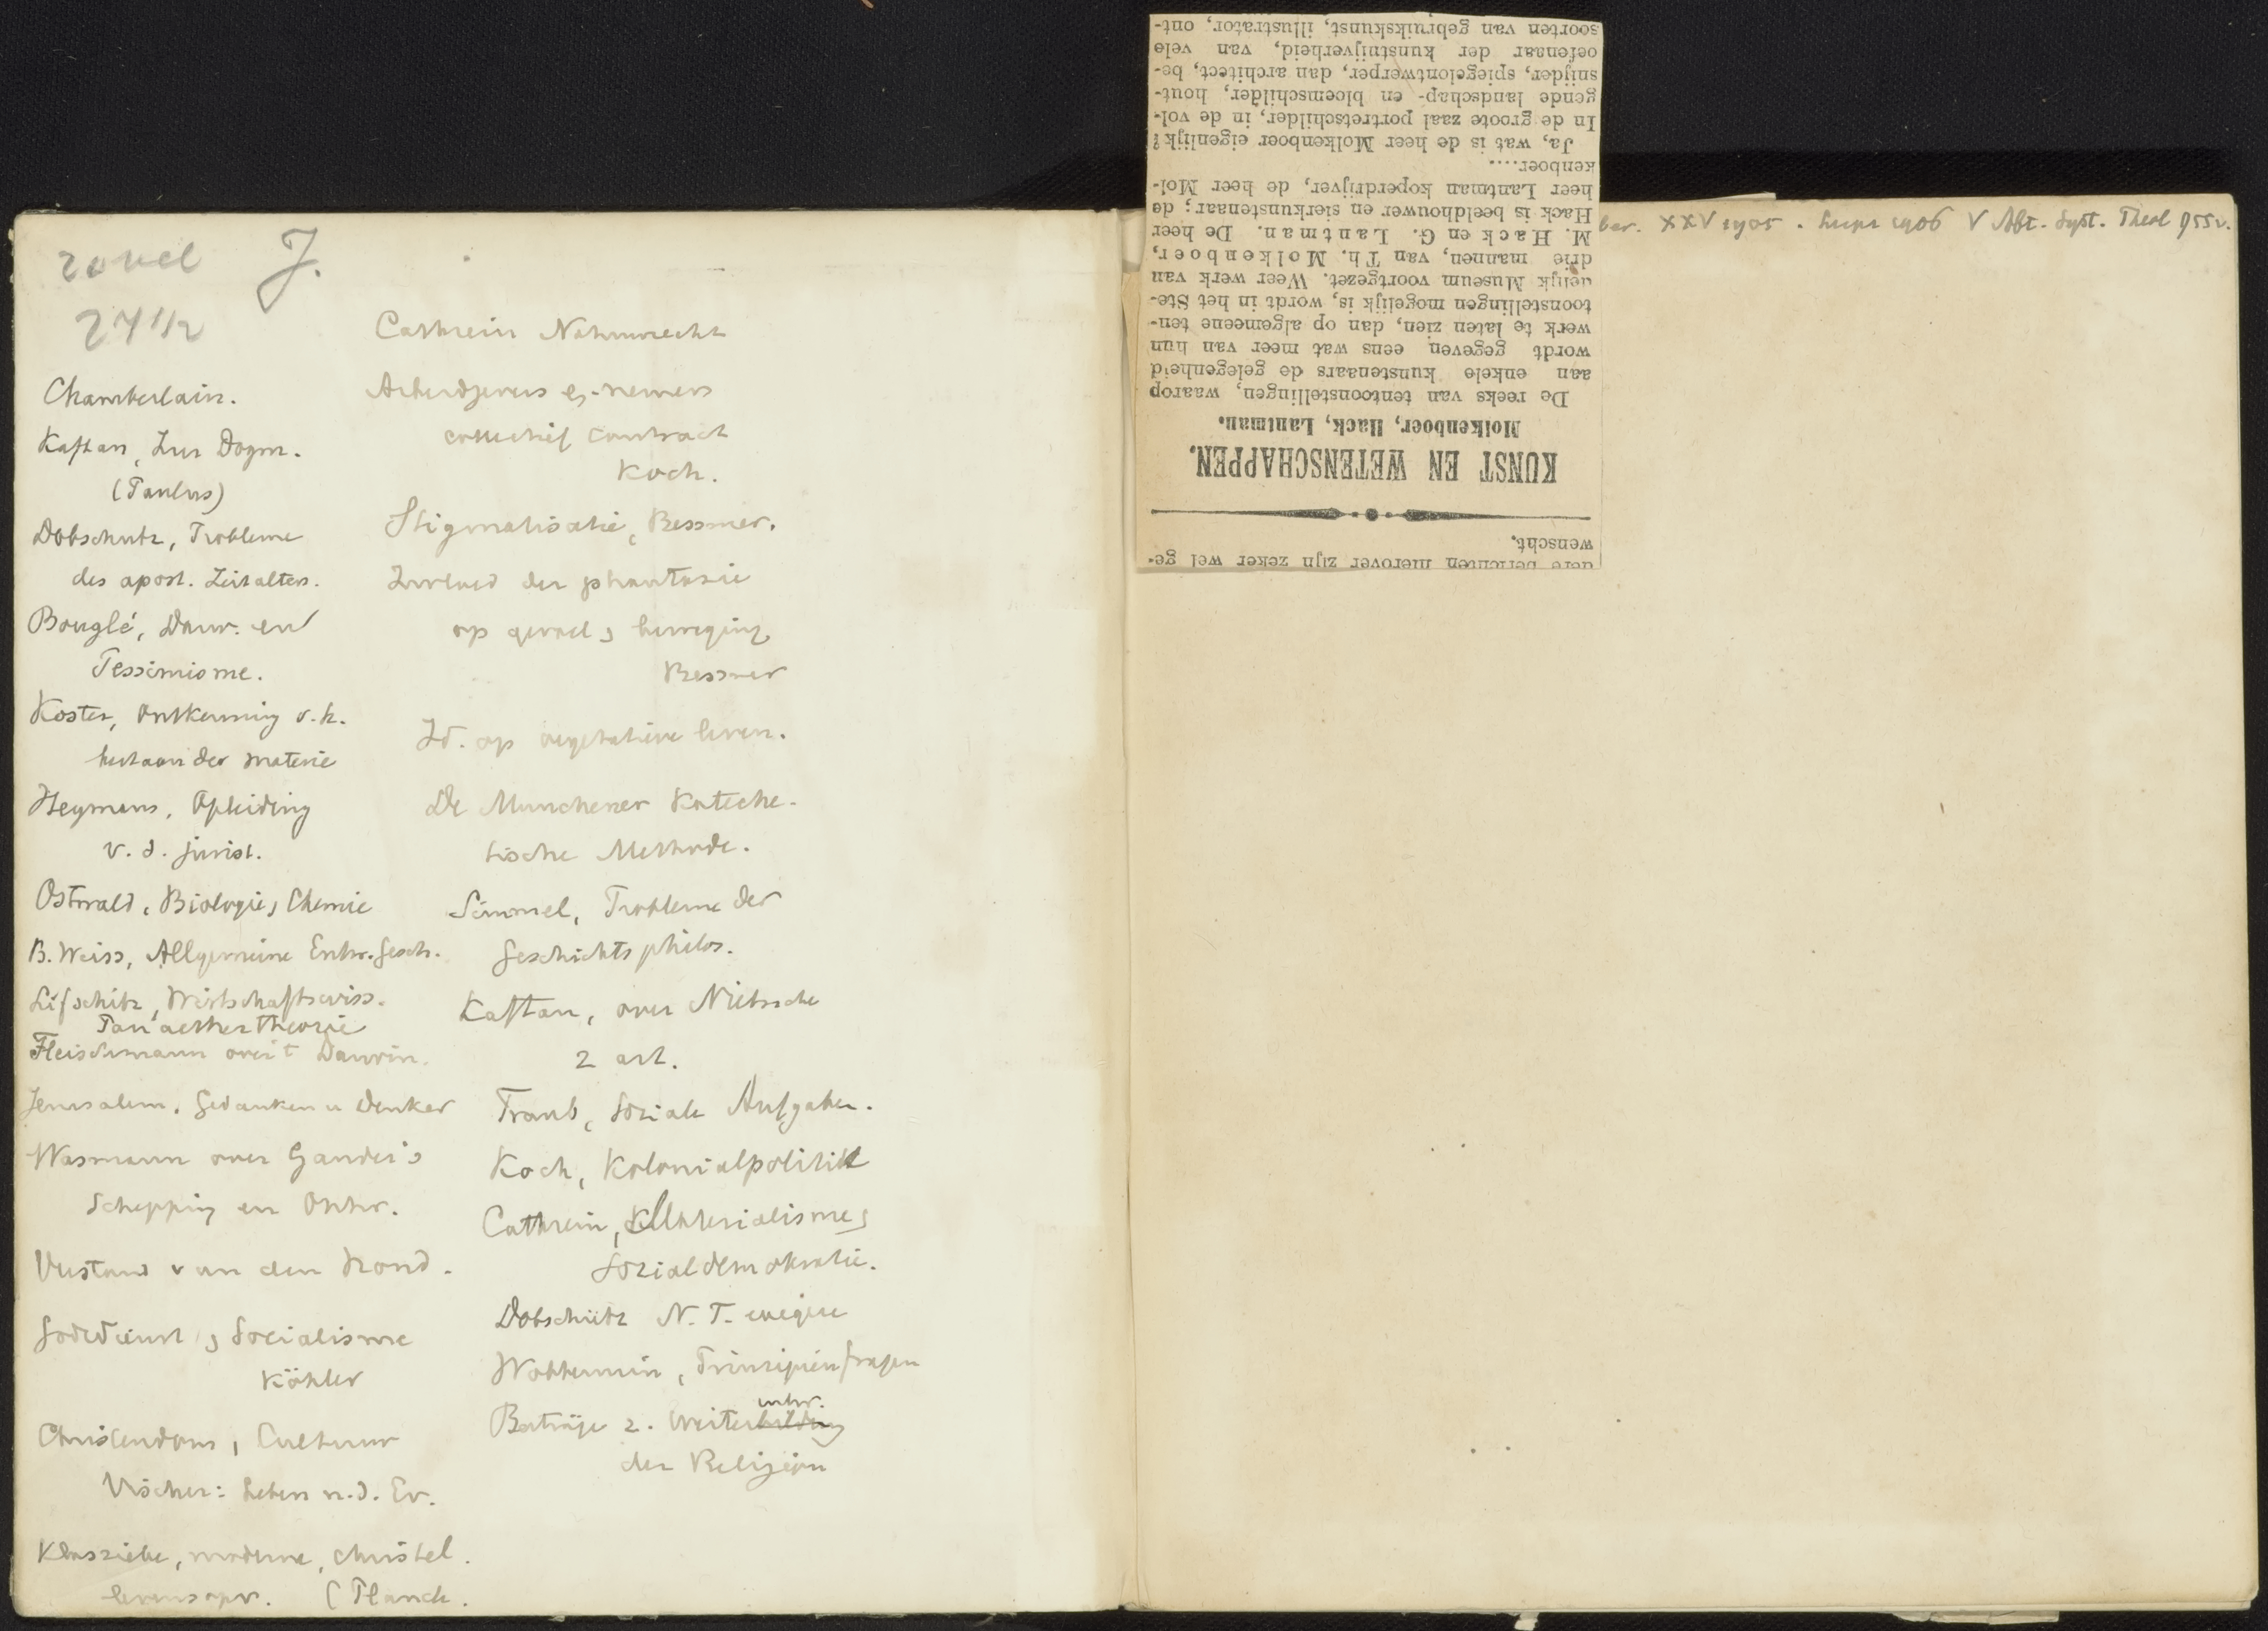 J.
27 1/2
Chamberlain.
Kaftan, Zur Dogm.
(Paulus)
Dobschutz, Probleme
des apost. Zeitalters.
Bouglé, Darw. en
Pessimisme.
Koster, Ontkenning v. h.
bestaan der materie
Heymans, Opleiding
v. d. jurist.
Ostwald, Biologie, Chemie
B. Weiss, Allgemeine Entw. gesch.
Lifschitz, Wirtschaftswiss.
Panaethertheorie
Fleischmann over 't Darwin.
Jerusalem, Gedanken u Denker
Wasmann over Gander's
Schepping en Ontw.
Verstand van den hond.
Godsdienst, Socialisme
Köhler
Christendom, Cultuur
Vischer: Leben n. d. Ev.
Klassieke, moderne, christel.
levensopv. (Planck.
Cathrein Naturrecht
Arbeidgevers en -nemers
collectief contract
Koch.
Stigmatisatie, Bessmer.
Invloed der phantasie
op gevoel, beweging
Bessmer
Id. op vegetatieve leven.
De Munchener Kateche-
tische Methode.
Simmel, Probleme der
Geschichtsphilos.
Kaftan, over Nietzsche
2 art.
Traub, Soziale Aufgaben.
Koch, Kolonialpolitik
Cathrein, Materialisme,
Sozialdemokratie.
Dobschütz N. T. exegese
Wobbermin, Prinzipienfragen
entw.
Beiträge z. Weiterbildung
der Religion
soorten van gebruikskunst, illustrator, ont-
oefenaar der kunstnijverheid, van vele
snijder, spiegelontwerper, dan architect, be-
gende landschap- en bloemschilder, hout-
In de groote zaal portretschilder, in de vol-
Ja, wat is de heer Molkenboer eigenlijk?
kenboer....
heer Lantman koperdrijver, de heer Mol-
Hack is beeldhouwer en sierkunstenaar; de
M. Hack en G. Lantman. De heer
drie mannen, van Th. Molkenboer,
delijk Museum voortgezet. Weer werk van
toonstellingen mogelijk is, wordt in het Ste-
werk te laten zien, dan op algemeene ten-
wordt gegeven eens wat meer van hun
aan enkele kunstenaars de gelegenheid
De reeks van tentoonstellingen, waarop
Molkenboer, Hack, Lantman.
KUNST EN WETENSCHAPPEN.
wenscht.
dere berichten hierover zijn zeker wel ge-
ber. XXV 1905. 1906 V Abt. Syst. Theol 955v.